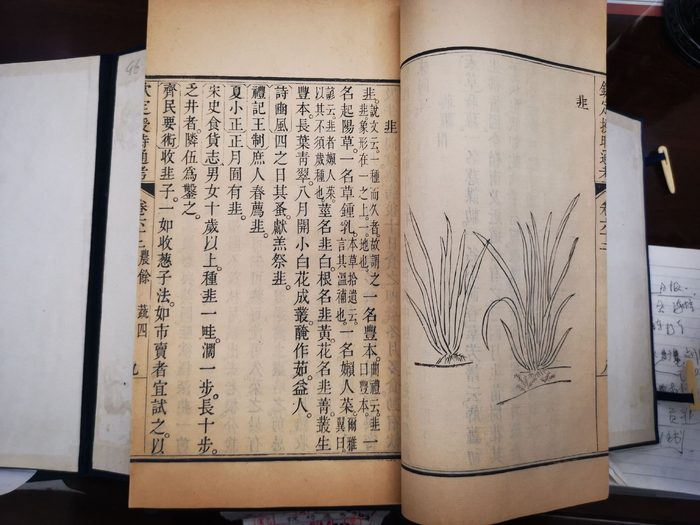 韭
韭
韭。說文云。一種而久者。故謂之韭象形在一之上。一。地也。一名豐本。曲禮云。韭曰豐本。一
名起陽草。一名草鍾乳。本草拾遺云。言其溫補也。一名嬾人菜。爾雅翼曰。
諺云。韭者嬾人菜。以其不須歲種也。莖名韭白。根名韭黃。花名韭菁。叢生
豐本。長葉青翠。八月開小白花成叢。醃作茹。益人。
詩豳風四之日其蚤。獻羔祭韭。
禮記王制庶人春薦韭。
夏小正正月囿有韭。
宋史食貨志男女十歲以上。種韭一畦。濶一步。長十步。
乏井者。隣伍為鑿之。
齊民要術收韭子。一如收葱子法。如市賣者宜試之。以
定授時通考 卷六十二 農餘 蔬四 九